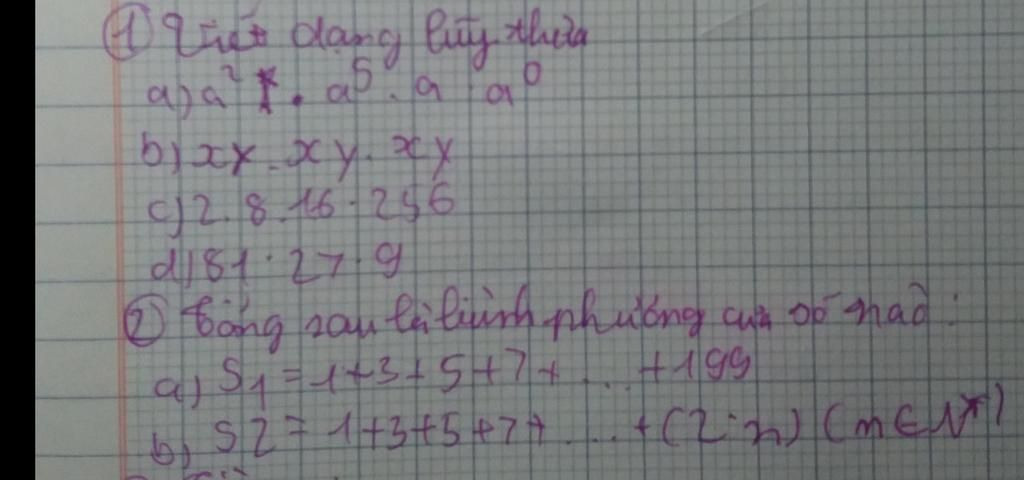 ① Viết dạng lũy thừa
a) a² . a⁵ . a . a⁰
b) xy . xy . xy
c) 2 . 8 . 16 . 256
d) 81 . 27 . 9
② Tổng sau là bình phương của số nào :
a) S1 = 1+3+5+7+ ... +199
b) S2 = 1+3+5+7+ ... +(2.n) (n ∈ N*)